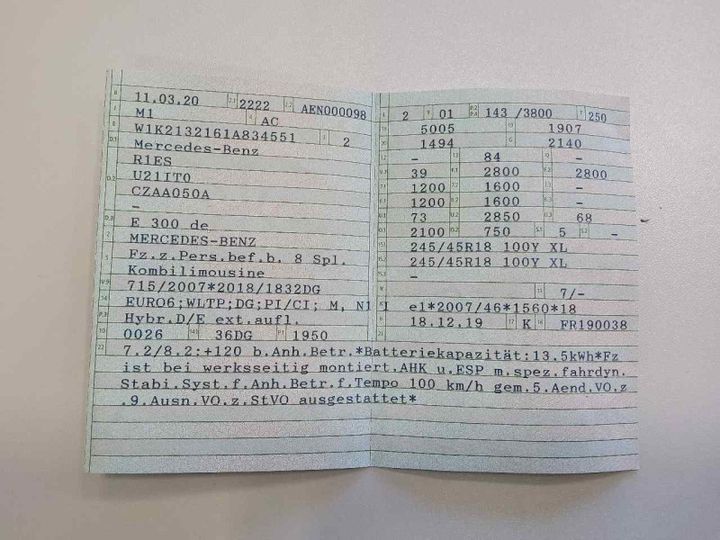 11.03.20 2222 AEN000098
M1 AC
W1K2132161A834551 2
Mercedes-Benz
R1ES
U21IT0
CZAA050A
-
E 300 de
MERCEDES-BENZ
Fz.z.Pers.bef.b. 8 Spl.
Kombilimousine
715/2007*2018/1832DG
EURO6;WLTP;DG;PI/CI; M, N1 I
Hybr.D/E ext.aufl.
0026 36DG 1950
2 01 143 /3800 250
5005 1907
1494 2140
- 84 -
39 2800 2800
1200 1600 -
1200 1600 -
73 2850 68
2100 750 5 -
245/45R18 100Y XL
245/45R18 100Y XL
-
7/-
e1*2007/46*1560*18
18.12.19 K FR190038
7.2/8.2:+120 b.Anh.Betr.*Batteriekapazität:13.5kWh*Fz
ist bei werksseitig montiert.AHK u.ESP m.spez.fahrdyn.
Stabi.Syst.f.Anh.Betr.f.Tempo 100 km/h gem.5.Aend.VO.z
.9.Ausn.VO.z.StVO ausgestattet*